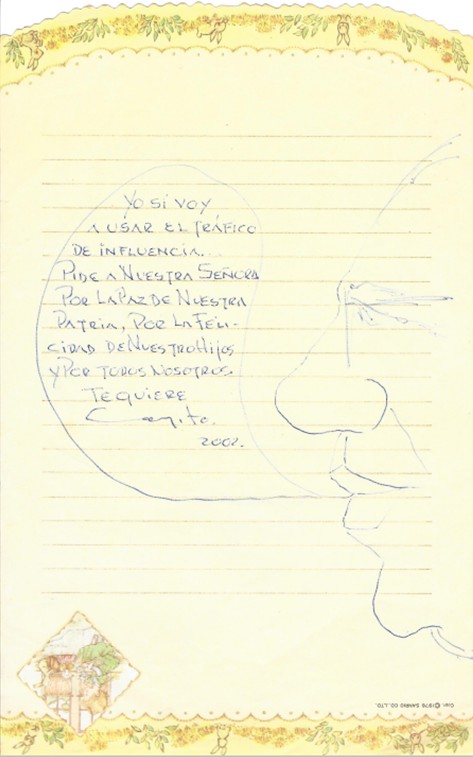 Yo si voy
A USAR EL TRÁFICO
DE iNFLUENCIA...
PiDE A NUESTRA SEÑORA
POR LA PAZ DE NUESTRA
PATRiA, POR LA FELi-
CIDAD DE NUESTRO HIJOS
Y POR TODOS NOSOTROS.
TE QUIERE
2002.
©1976 SANRIO CO.,LTD.